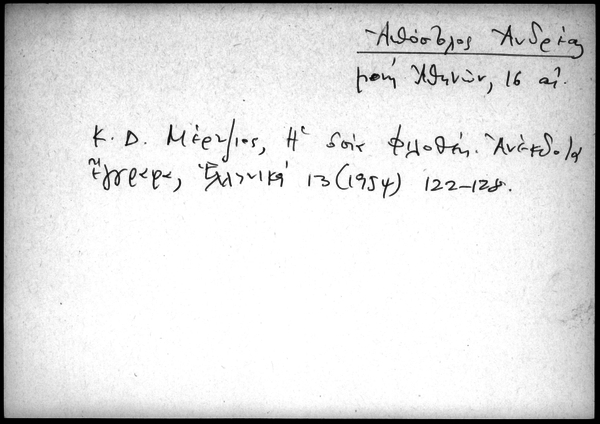 Ἀπόστολος Ἀνδρέας
μονή Ἀθηνῶν, 16 αἰ.
Κ. Δ. Μέρτζιος, Ἡ ὁσία Φιλοθέη. Ἀνέκδοτα
ἔγγραφα, Ἑλληνικά 13 (1954) 122-128.